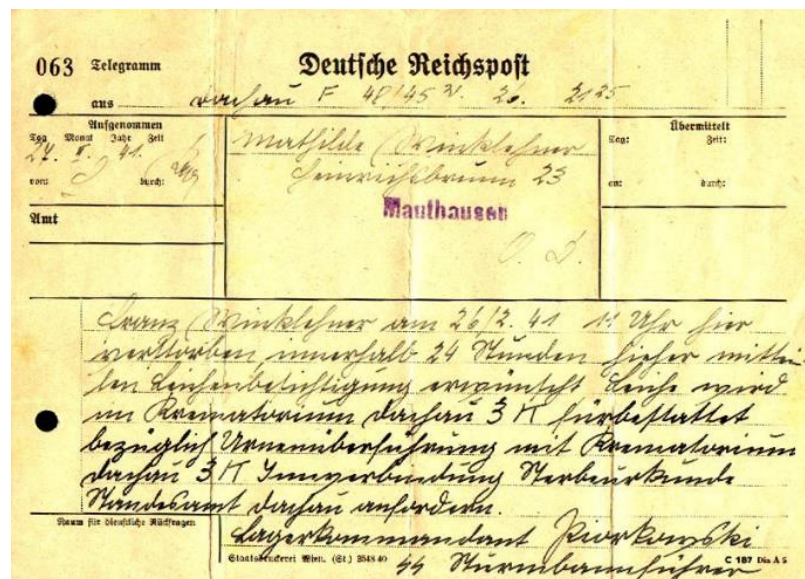 063 Telegramm
Deutsche Reichspost
aus Dachau F 48/45 W. 26. 2125
Aufgenommen
Tag Monat Jahr Zeit
27. II. 41.
von: durch:
Amt
Mathilde Winklehner
Heinrichsbrunn 23
Mauthausen
O. D.
Übermittelt
Tag: Zeit:
an: durch:
Franz Winklehner am 26/2. 41 Uhr hier
verstorben innerhalb 24 Stunden hieher mittei-
len Leichenbesichtigung erwünscht Leiche wird
im Krematorium Dachau 3 K
bezüglich Urnenüberführung mit Krematorium
Dachau 3 K Sterbeurkunde
Standesamt Dachau anfordern.
Raum für dienstliche Rückfragen
Lagerkommandant Piorkowski
SS Sturmbannführer
Staatsdruckerei Wien. (St.) 3548 40
C 187 Din A 5